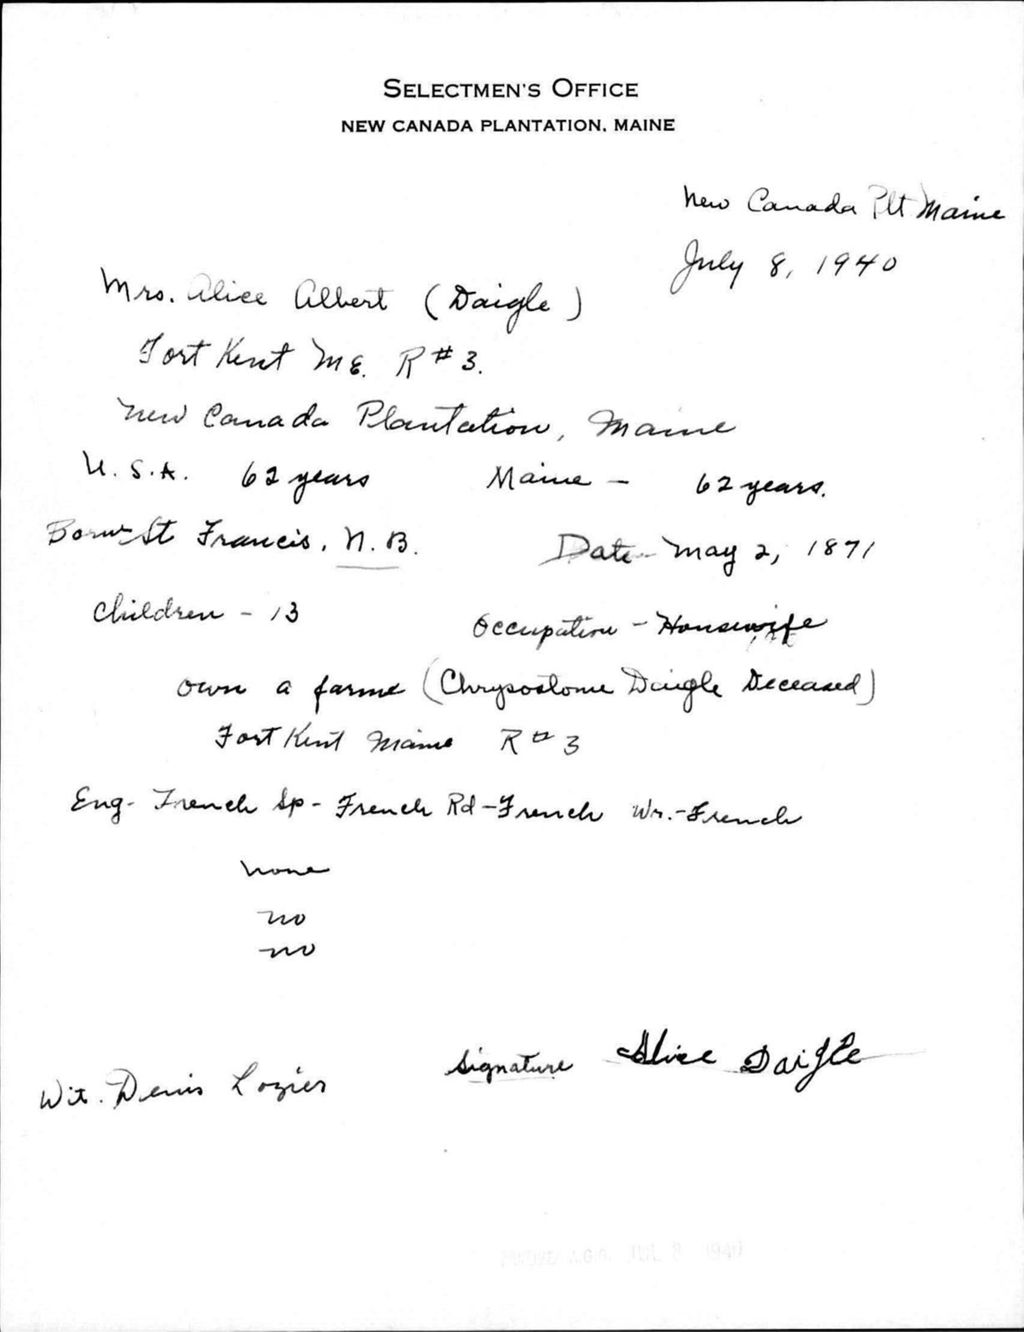 SELECTMEN'S OFFICE
NEW CANADA PLANTATION, MAINE
New Canada Plt Maine
July 8, 1940
Mrs. Alice Albert (Daigle)
Fort Kent ME. R # 3.
New Canada Plantation, Maine
U.S.A. 62 years Maine - 62 years.
Born St Francis, N.B. Date - May 2, 1871
Children - 13 Occupation - Housewife
own a farm (Chrysostome Daigle Deceased)
Fort Kent Maine R # 3
Eng - French Sp - French Rd - French Wr. - French
none
no
no
Signature Alice Daigle
Wit. Denis Lozier
JUL 8 1940